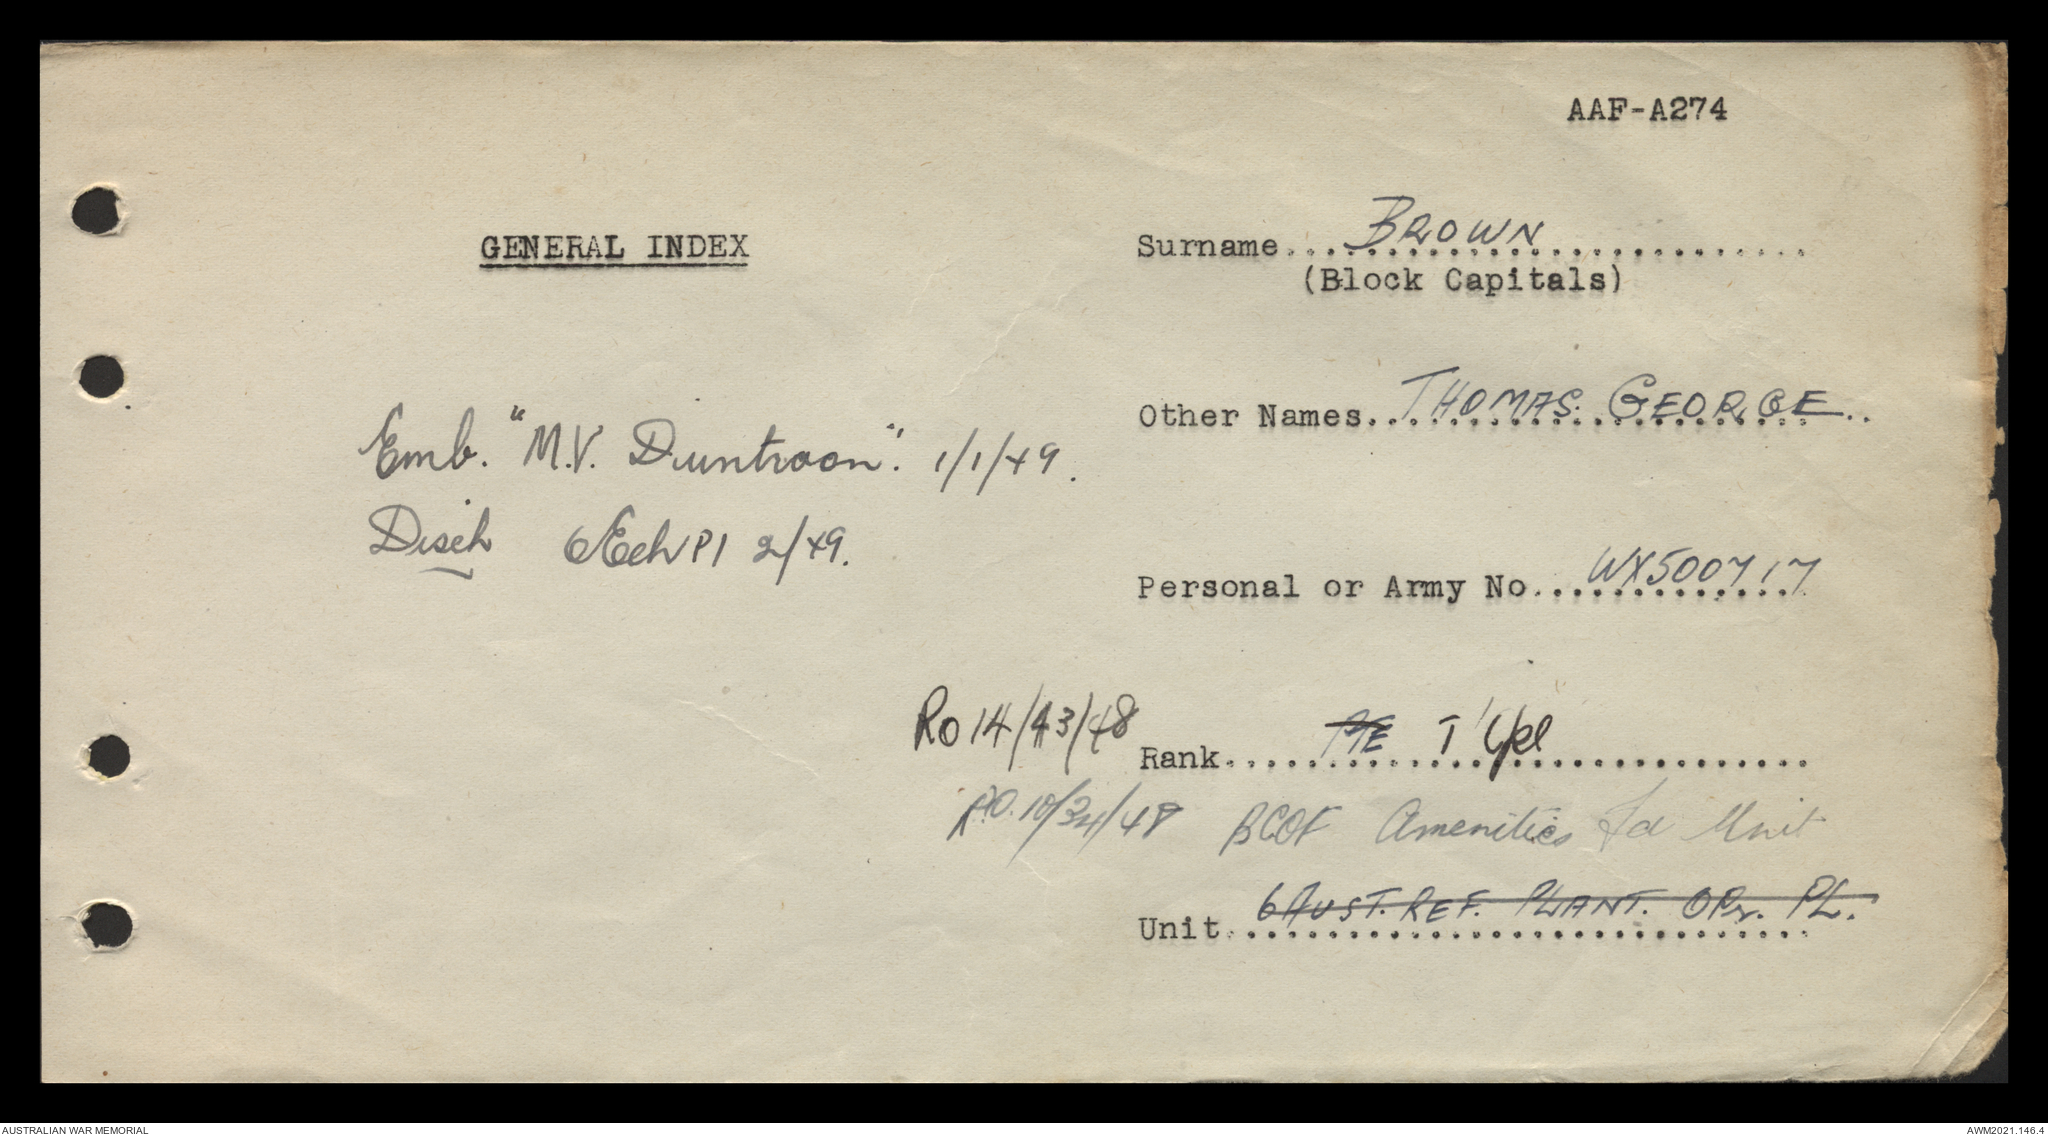 AAF-A274
GENERAL INDEX
Surname.... BROWN
(Block Capitals)
Other Names.. THOMAS. GEORGE..
Emb. "M.V. Duntroon". 1/1/49.
Disch Ech P1 2/49.
Personal or Army No.. WX500717
Ro 14/43/48
Rank.... PTE T/Cpl
R.O. 10/34/48 BCOF Amenities Fd Unit
Unit.. 6 AUST. REF. PLANT. OPr. PL.
AUSTRALIAN WAR MEMORIAL
AWM2021.146.4